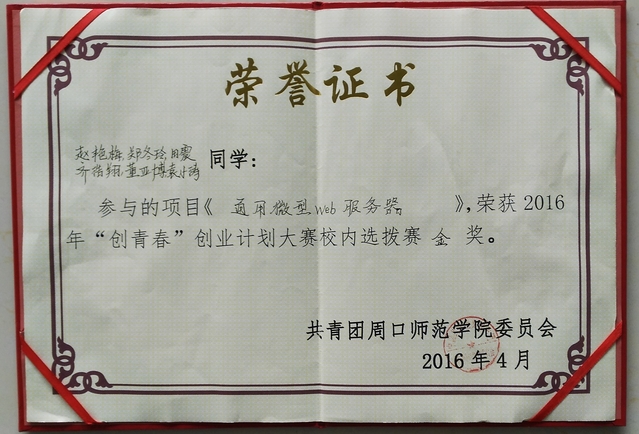 荣誉证书
赵艳梅 郑冬玲 田震
齐浩翔 董亚博 袁小涛 同学：
参与的项目《 通用微型web服务器 》，荣获2016
年“创青春”创业计划大赛校内选拨赛 金 奖。
共青团周口师范学院委员会
2016年4月